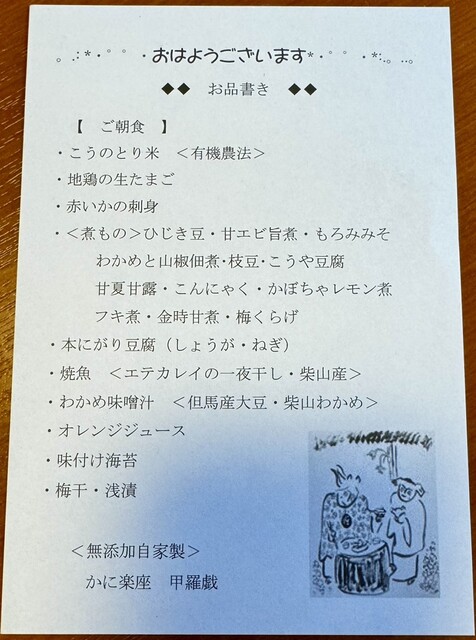 。.:*・゜゜・おはようございます*・゜゜・*:.。..。
◆◆　お品書き　◆◆
【　ご朝食　】
・こうのとり米　＜有機農法＞
・地鶏の生たまご
・赤いかの刺身
・＜煮もの＞ひじき豆・甘エビ旨煮・もろみみそ
わかめと山椒佃煮・枝豆・こうや豆腐
甘夏甘露・こんにゃく・かぼちゃレモン煮
フキ煮・金時甘煮・梅くらげ
・本にがり豆腐（しょうが・ねぎ）
・焼魚　＜エテカレイの一夜干し・柴山産＞
・わかめ味噌汁　＜但馬産大豆・柴山わかめ＞
・オレンジジュース
・味付け海苔
・梅干・浅漬
＜無添加自家製＞
かに楽座　甲羅戯